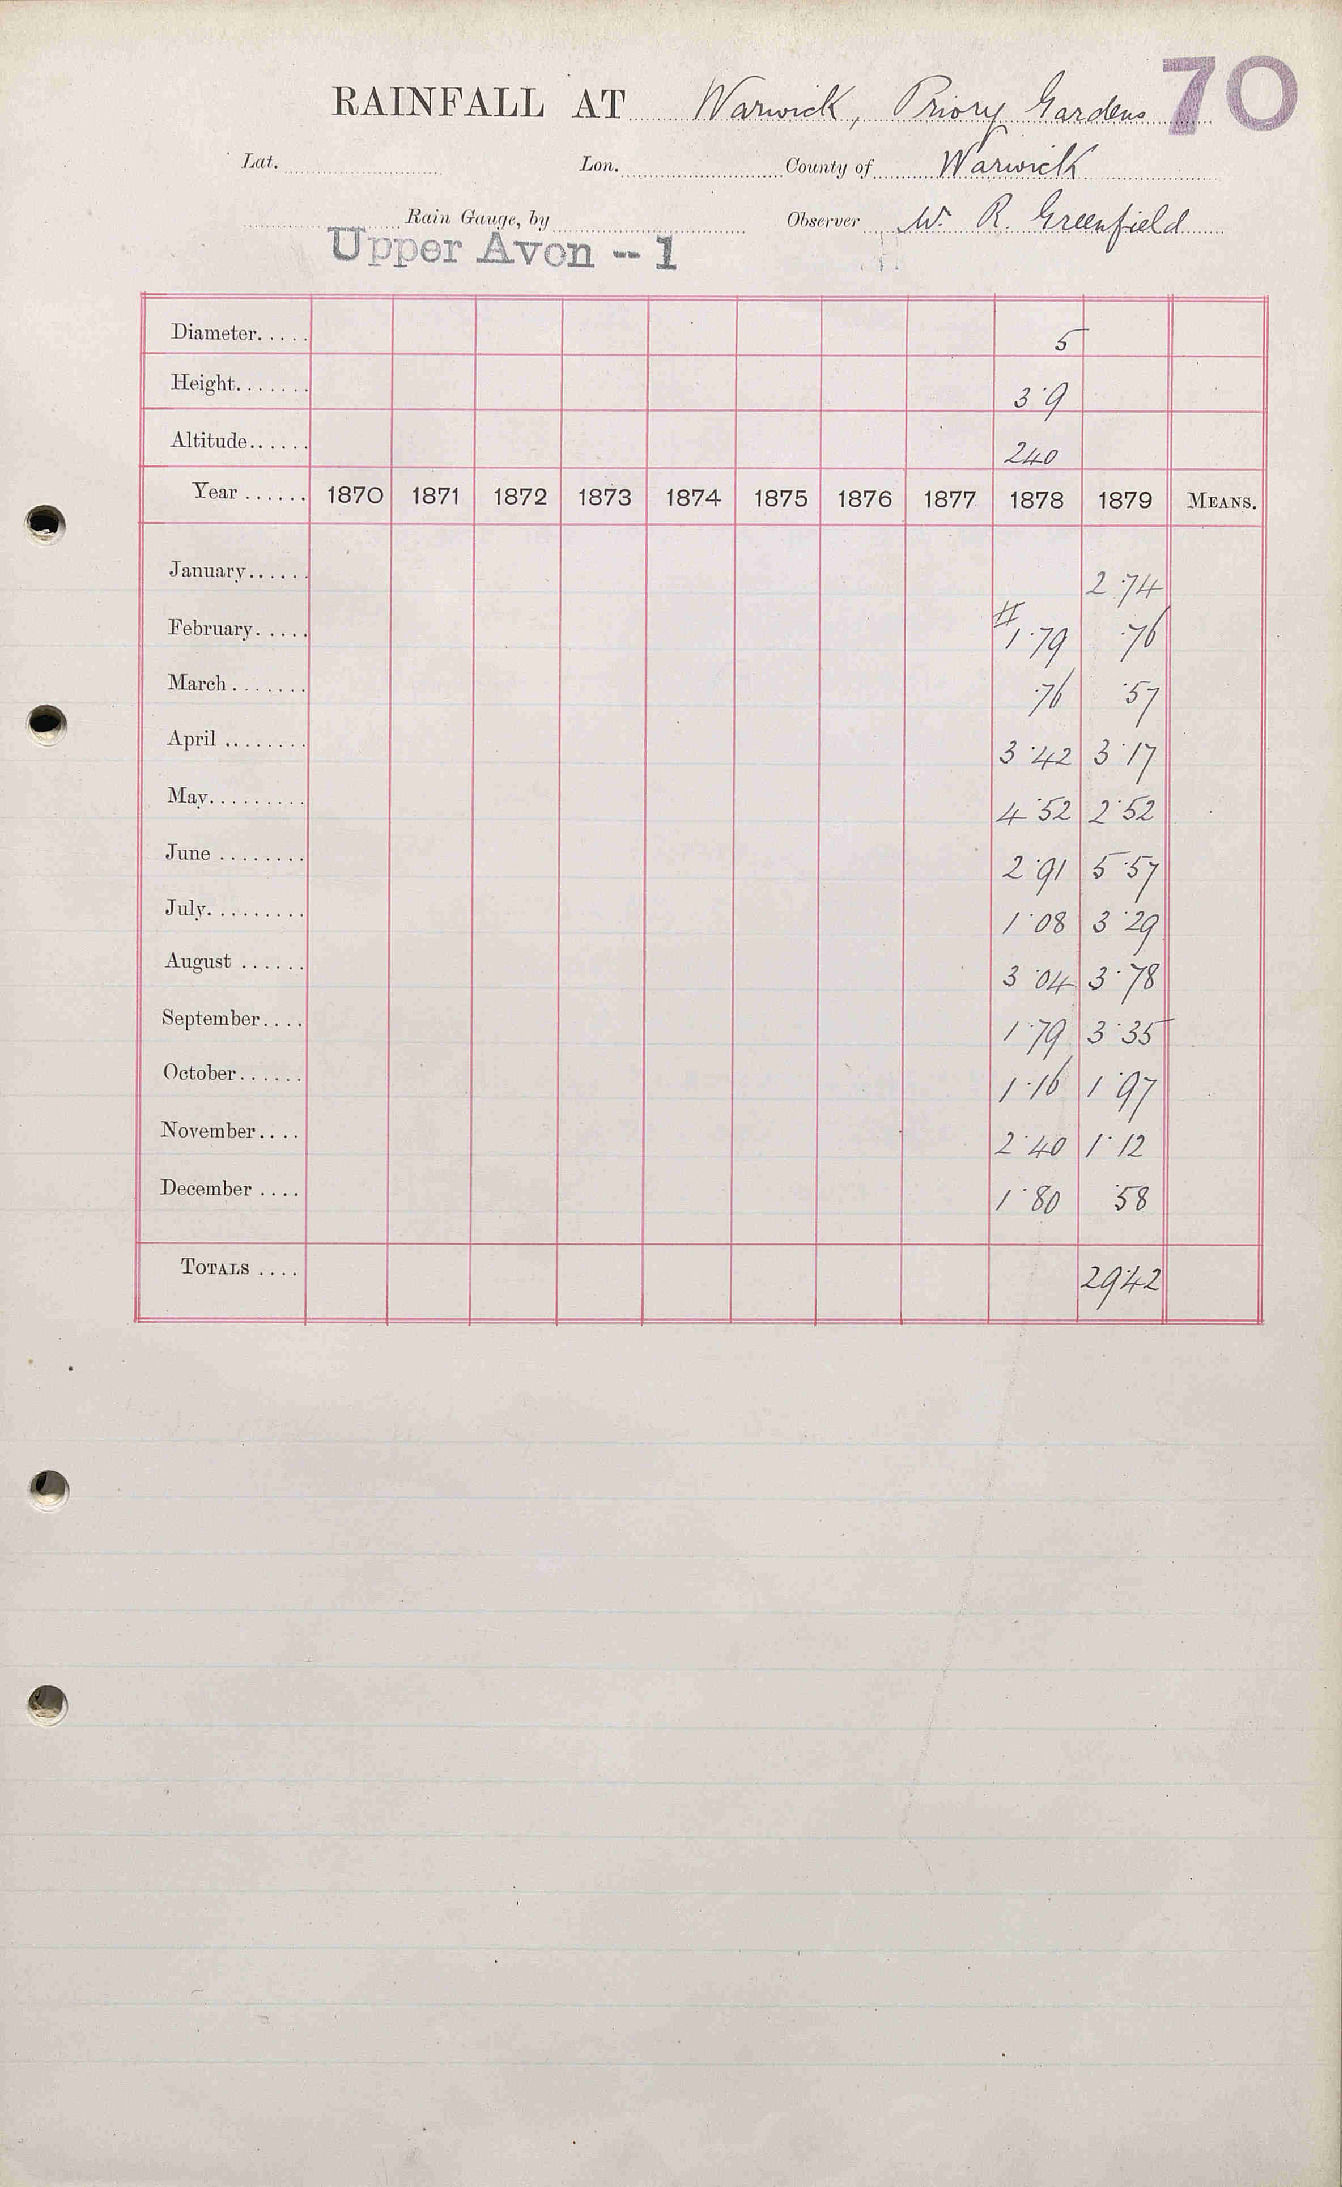 70
RAINFALL AT Warwick, Priory Gardens
Lat. Lon. County of Warwick
Rain Gauge, by Observer W. R. Greenfield
Upper Avon -- 1
Diameter..... 5
Height....... 3·9
Altitude...... 240
Year ...... 1870 1871 1872 1873 1874 1875 1876 1877 1878 1879 MEANS.
January...... 2·74
February..... # 1·79 ·76
March ....... ·76 ·57
April ........ 3·42 3·17
May......... 4·52 2·52
June ........ 2·91 5·57
July......... 1·08 3·29
August ...... 3·04 3·78
September.... 1·79 3·35
October...... 1·16 1·97
November.... 2·40 1·12
December .... 1·80 ·58
TOTALS .... 29·42